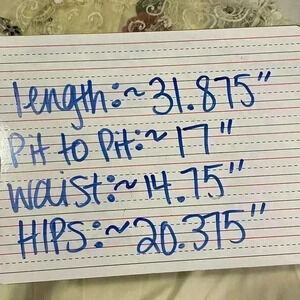 length:~31.875"
Pit to Pit:~17"
waist:~14.75"
HIPS:~20.375"